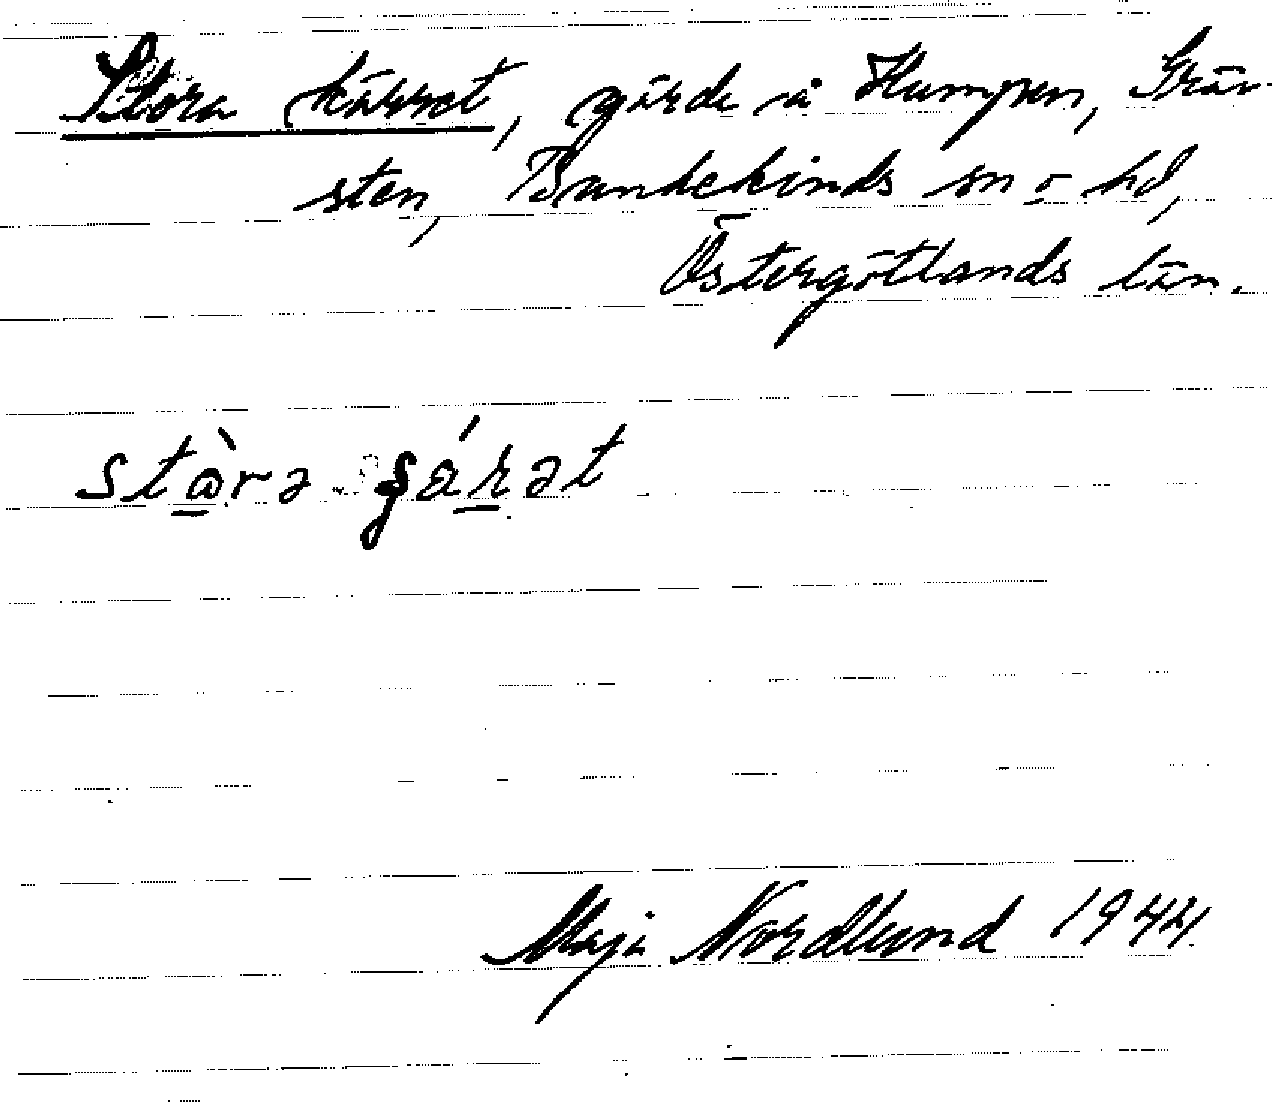 Stora kärret, gärde å Humpen, Grän-
sten, Bankekinds sn o hd,
Östergötlands län.
stɷ̀rə ʂárət
Maja Nordlund 1944.